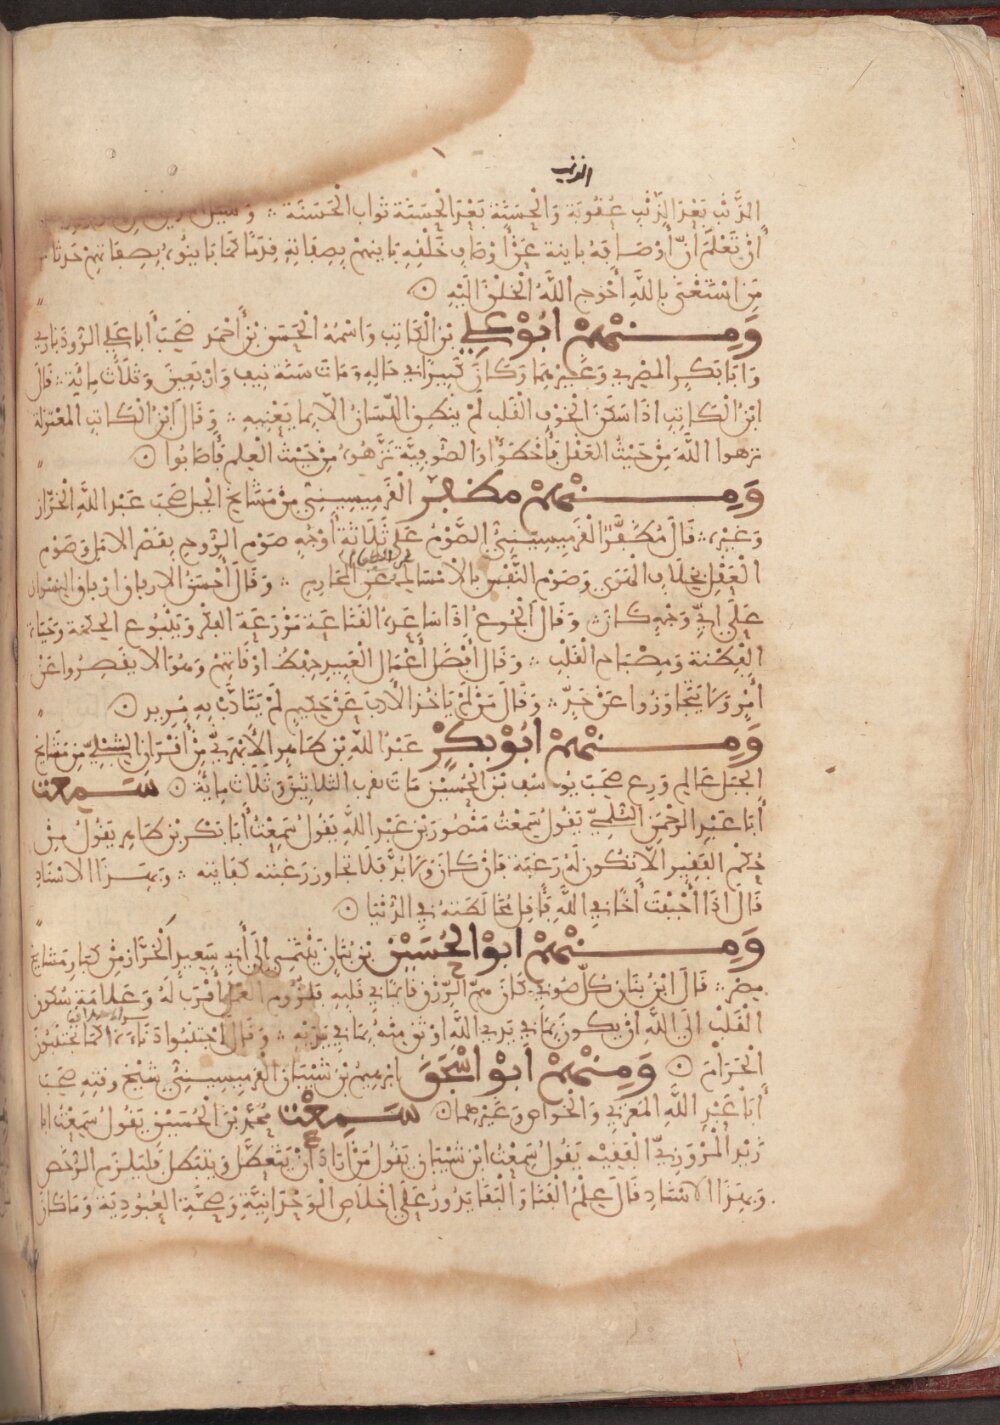 الذنب
الذَّنْب بَعْدَ الذَّنْبِ عُقُوبَة وَالْحَسَنَة بَعْدَ الْحَسَنَة ثَوَاب الْحَسَنَة ؞ وَسُيِلَ
أَنْ تَعْلَمَ أَنَّ أَوْصَافَهُ باينة عَنْ أَوْصَافِ خَلْقِهِ بَاينهمْ بِصِفَاتِهِ قِدَمًا كَمَا بَاينُوهُ بِصِفَاتِهِمْ حَدَثًا
مَنِ اسْتَغْنَى بِاللَّهِ أَحْوَجَ اللَّهُ الْخَلْقَ إلَيْهِ ۞
وَمِنْهُمْ أبُوْ عَلِي بْن الْكَاتِب وَاسْمُهُ الْحَسَن بْن أَحْمَد صَحِبَ أَبَا عَلِي الرُّوذَبَارِي
وَأبَا بَكْر المصْرِي وَغَيْرهمَا وَكَانَ كَبِيرًا في حَالِهِ وَمَاتَ سَنَة نيف وَأرْبَعِينَ وَثَلَاث مِائَة ؞ قَالَ
ابْنُ الْكَاتِب اذَا سَكَنَ الْخَوْف الْقَلب لَمْ ينْطِق اللّسَانُ الَّا بِمَا يَعْنِيهِ ؞ وَقَالَ ابْن الْكَاتِب المعْتَزلة
نزهوا اللَّهَ مِنْ حَيْثُ العَقْل فَأَخْطَؤُا وَالصُّوفِيَّة نَزَّهُوهُ مِنْ حَيْثُ الْعِلمِ فَأَصَابُوا ۞
وَمِنْهُمْ مظفر الْقَرْمِيسِينِيّ مِنْ مَشَايخ الْجَبل صَحِبَ عَبْد اللَّهِ الْخَرَّاز
وَغَيْرهُ ؞ قَالَ مُظَفَّر الْقَرْمِيسِينِيّ الصَّوْمُ عَلَى ثَلَاثَة أَوْجُهٍ صَوْم الرُّوح بِقصْر الامَل وَصَوْم
عن الطعام
الْعَقْل بِخِلَافِ الْهَوَى وَصَوْم النَّفْس بِالْامْسَاكِ عَنِ الْمَحَارِم ؞ وَقَالَ أَخسّ الارفاق ارفاق النسْوان
عَلَى أيّ وَجْهٍ كَانَ ؞ وَقَالَ الْجُوعُ إذَا سَاعَدهُ القَنَاعَة مَزْرَعَة الْفِكْر وَيَنْبُوع الحِكْمة وَحَيَاة
الْفِطْنة وَمِصْبَاح الْقَلْب ؞ وَقَالَ أَفْضَل أَعْمَال الْعَبِيد حِفْظُ اوْقَاتِهِمْ وَهُوَ الَّا يقَصِرُوا عَنْ
أمْرٍ وَلَا يَتَجَاوَزُوا عَنْ حَدٍّ ؞ وَقَالَ مَنْ لَمْ يَاخُذِ الْأَدَبَ عَنْ حَكِيمٍ لَمْ يَتَأَدَّبْ بِهِ مُرِيد ۞
وَمِنْهُمْ أبُوْ بَكْرٍ عَبْدُ اللَّهِ بْن طَاهِر الْأَبْهَرِيّ مِنْ أَقْرَانِ الشّبْلِيِّ مِنْ مَشَايخ
الجبَل عَالِم وَرِع صَحِبَ يُوسُف بْنَ الْحُسَيْنِ مَاتَ بقرب الثلاثينَ وَثَلَاث مِائَة ۞ سَمِعت
أَبَا عَبْد الرَّحْمَنِ السُّلَمِيّ يَقُول سَمِعْت مَنْصُورَ بْن عَبْد اللَّهِ يَقُولُ سَمِعْتُ أَبَا بَكْر بْن طَاهِر يَقُولُ مِنْ
حُكْم الفَقِير الَّا تَكُونَ لَهُ رَغبَة فَإنْ كَانَ وَلَا بُدَّ فَلَا تجَاوز رَغْبته كفَايته ؞ وَبِهَذَا الاسْنَادِ
قَالَ اذَا أَحْبَبْتَ أَخًا في اللَّهِ فَأَقِل مُخَالَطَتَهُ في الدُّنْيَا ۞
وَمِنْهُمْ أبُوْ الْحُسَيْنِ بْن بُنَانٍ يَنْتَمِي إلَى أَبِي سَعِيد الْخَرَّاز مِنْ كِبَارِ مَشَايخ
مِصْر ؞ قَالَ ابْنُ بُنَانٍ كُلّ صُوفِي كَانَ همّ الرّزْقِ قَائِمًا في قَلبِهِ فَلُزُوم العَمَل أَقْرَب لَهُ وَعَلَامَة سُكُون
الْقَلْبِ إلَى اللَّهِ أنْ يَكُونَ بِمَا في يَدِي اللَّهِ اوْثَق مِنْهُ بمَا في يَدِهِ ؞ وَقَالَ اجْتَنبُوا دَنَاءَة كَمَا تجْتَنبُونَ
الْحَرَامَ ۞ وَمِنْهُمْ أَبُوْ اسْحَقَ ابْرَهِيمُ بْن شَيْبَانَ الْقرْمِيسِينِيّ شَيْخ وقتِهِ صَحِبَ
أَبَا عَبْد اللَّهِ الْمَغْرِبِي وَالْخَوَّاص وَغَيْرهمَا ۞ سَمِعْت مُحَمَّدَ بْنَ الْحُسَيْنِ يَقُول سَمِعْتُ ابَا
زَيْد الْمَرْوَزِيّ الْفَقِيْه يَقُولُ سَمِعْتُ ابْنَ شَيْبَانَ يَقُول مَنْ أَرَادَ أنْ يَتَعَطَّلَ وَيَتَبَطَّل فَليَلْزَمِ الرُّخَص
وَبِهَذَا الاسْنَادِ قَالَ عِلْمُ الْفَنَا وَالْبَقَا يَدُورُ عَلَى إخْلَاصِ الْوَحْدَانِيَّةِ وَصِحَّةِ العُبُودِيَّةِ وَمَا كَانَ